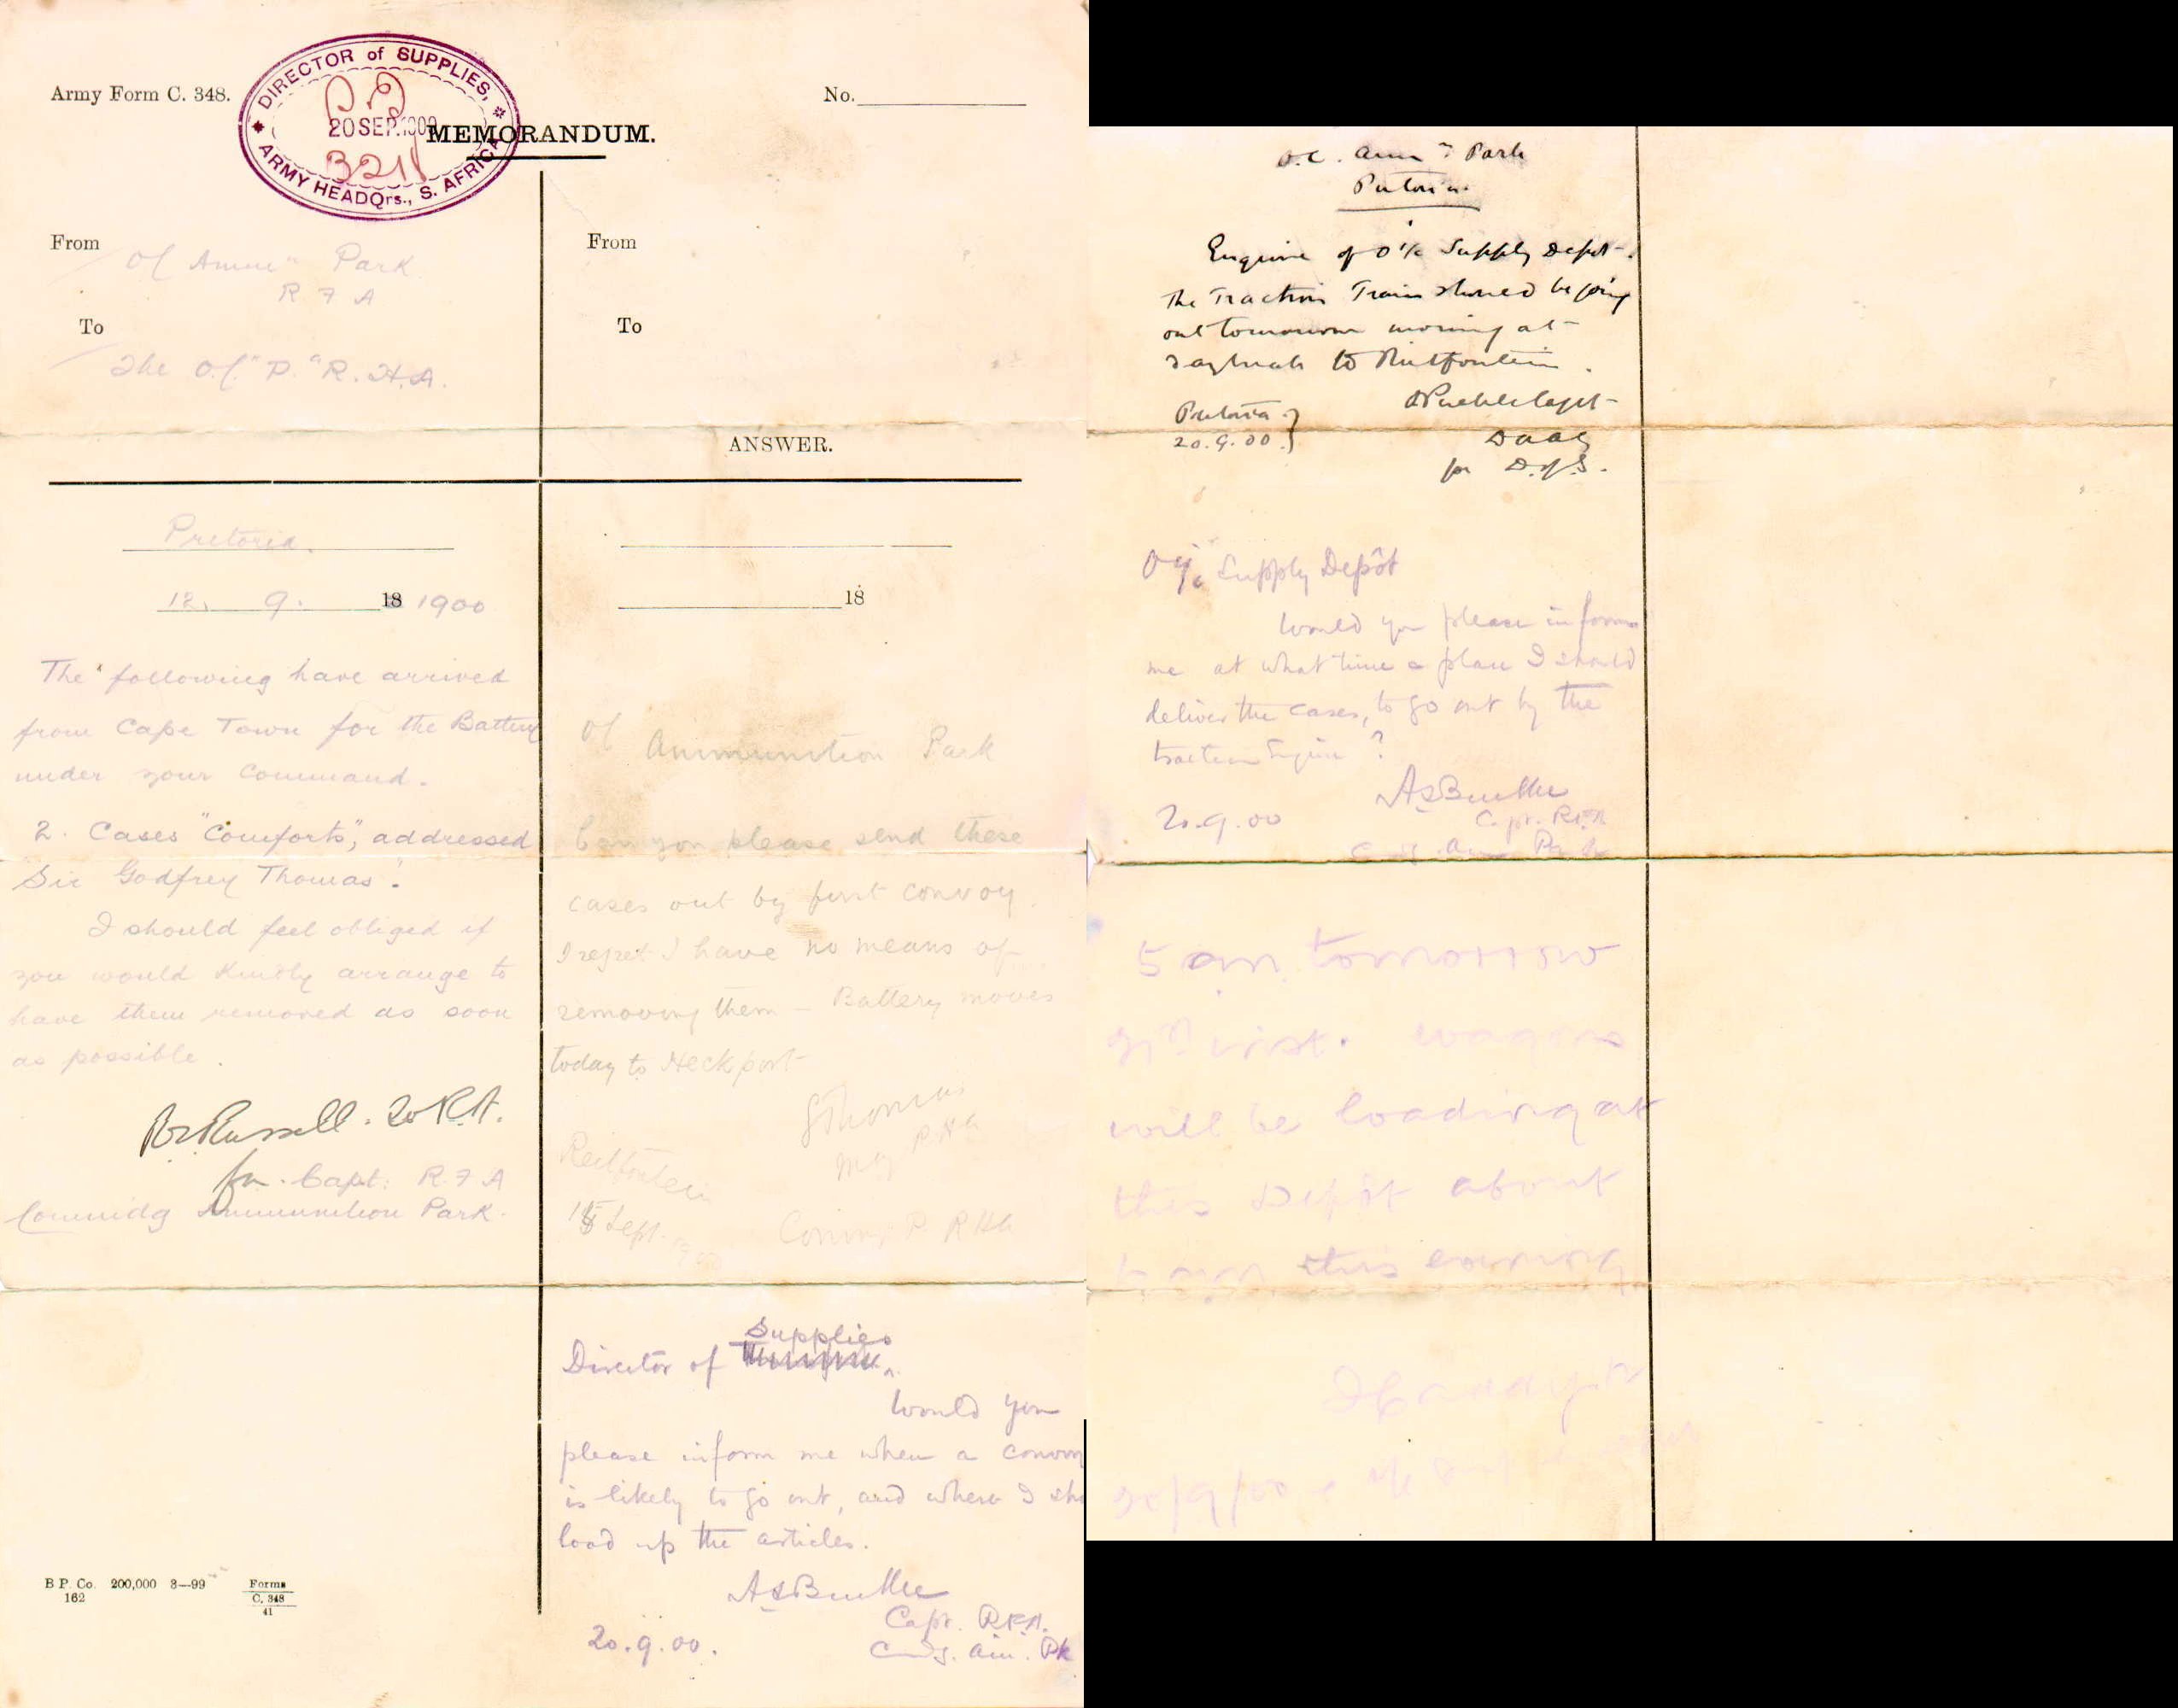 Army Form C. 348.
DIRECTOR of SUPPLIES,
20 SEP. 1900
3211
ARMY HEADQrs., S. AFRICA
No.
MEMORANDUM.
From
OC Ammn Park
R F A
To
The O.C. "P." R. H. A.
Pretoria.
12. 9. 18 1900
The following have arrived
from Cape Town for the Battery
under your Command.
2. Cases "Comforts", addressed
Sir Godfrey Thomas.
I should feel obliged if
you would kindly arrange to
have them removed as soon
as possible.
Russell. Lt R.A.
for. Capt: R. F. A
Commdg Ammunition Park.
B P. Co. 200,000 3—99
162
Forms
C. 348
41
From
To
ANSWER.
18
OC Ammunition Park
Can you please send these
cases out by first convoy.
I regret I have no means of
removing them — Battery moves
today to Neckport
GThomas
Maj RHA
Rietfontein
15 Sept. 1900
Commg P RHA
Director of Supplies
Would you
please inform me when a convoy
is likely to go out, and where I sho
load up the articles.
Capt. RFA.
20.9.00.
Cmdg. Am. Pk
O.C. Ammn Park
Pretoria
Enquire of O i/c Supply Depot.
The Traction Train should be going
out tomorrow morning at
daybreak to Rietfontein.
Capt
Pretoria
20.9.00.
DAAG
for D.of.S.
O i/c Supply Depôt
Would you please inform
me at what time & place I should
deliver the cases, to go out by the
traction Engine?
20.9.00
Capt. RFA
Cmdg. Am Park
5 am tomorrow
21st inst. wagons
will be loading at
this Depôt about
this evening
20/9/00